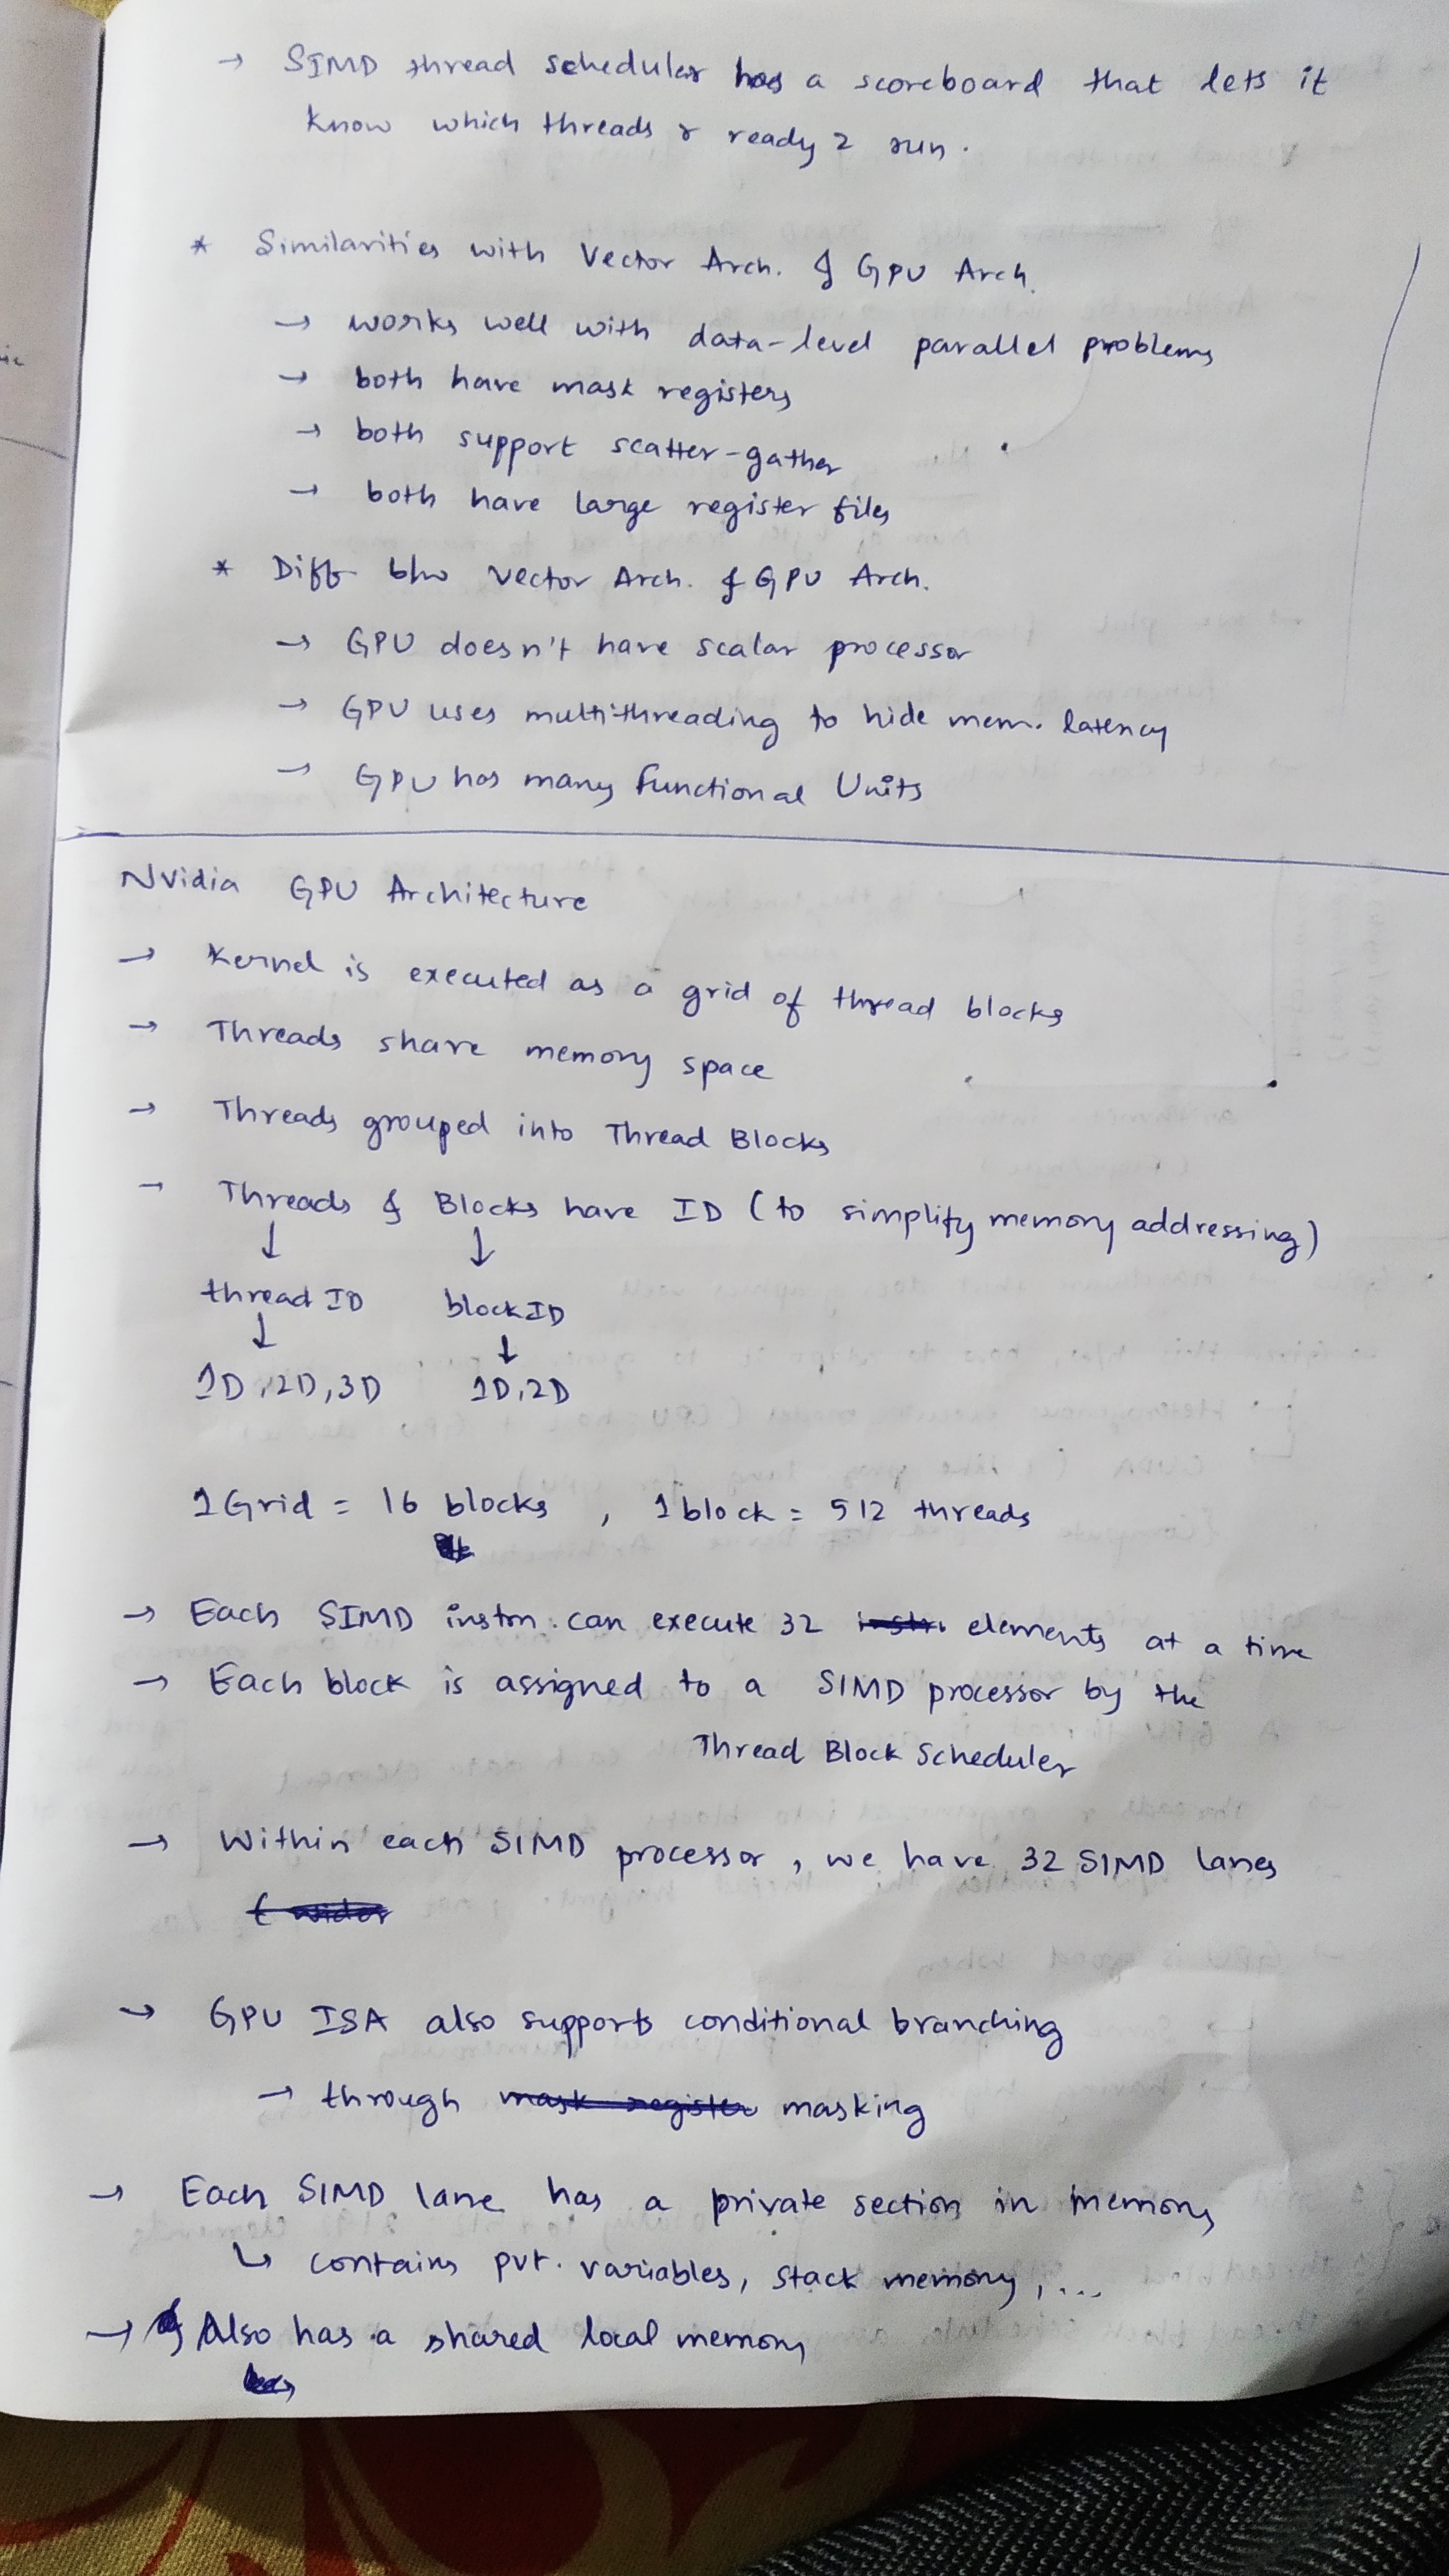 → SIMD thread scheduler has a scoreboard that lets it
know which threads r ready 2 run.
* Similarities with Vector Arch. & GPU Arch.
→ works well with data-level parallel problems
→ both have mask registers
→ both support scatter-gather
→ both have large register files
* Diff b/w Vector Arch. & GPU Arch.
→ GPU doesn't have scalar processor
→ GPU uses multithreading to hide mem. latency
→ GPU has many Functional Units
Nvidia GPU Architecture
→ Kernel is executed as a grid of thread blocks
→ Threads share memory space
→ Threads grouped into Thread Blocks
→ Threads & Blocks have ID (to simplify memory addressing)
↓ ↓
thread ID blockID
↓ ↓
1D, 2D, 3D 1D, 2D
1 Grid = 16 blocks, 1 block = 512 threads
→ Each SIMD instrn. can execute 32 elements at a time
→ Each block is assigned to a SIMD processor by the
Thread Block Scheduler
→ Within each SIMD processor, we have 32 SIMD lanes
→ GPU ISA also supports conditional branching
→ through mask register masking
→ Each SIMD lane has a private section in memory
↳ contains pvt. variables, stack memory, ...
→ Also has a shared local memory